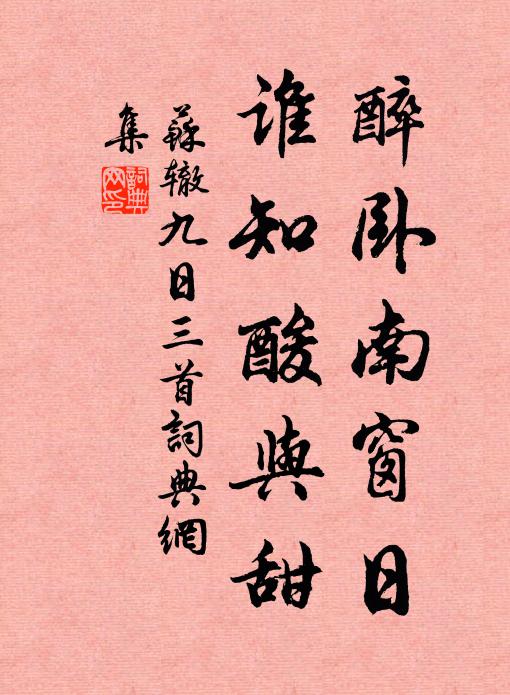 醉卧南窗日
誰知酸與甜
蘇辙九日三首詞典網
集
詞典
网印